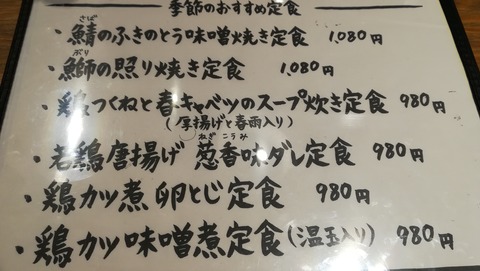 季節のおすすめ定食
さば
・鯖のふきのとう味噌焼き定食 1,080円
ぶり
・鰤の照り焼き定食 1,080円
・鶏つくねと春キャベツのスープ炊き定食 980円
(厚揚げと春雨入り)
ねぎこうみ
・若鶏唐揚げ 葱香味ダレ定食 980円
・鶏カツ煮 卵とじ定食 980円
・鶏カツ味噌煮定食(温玉入り) 980円